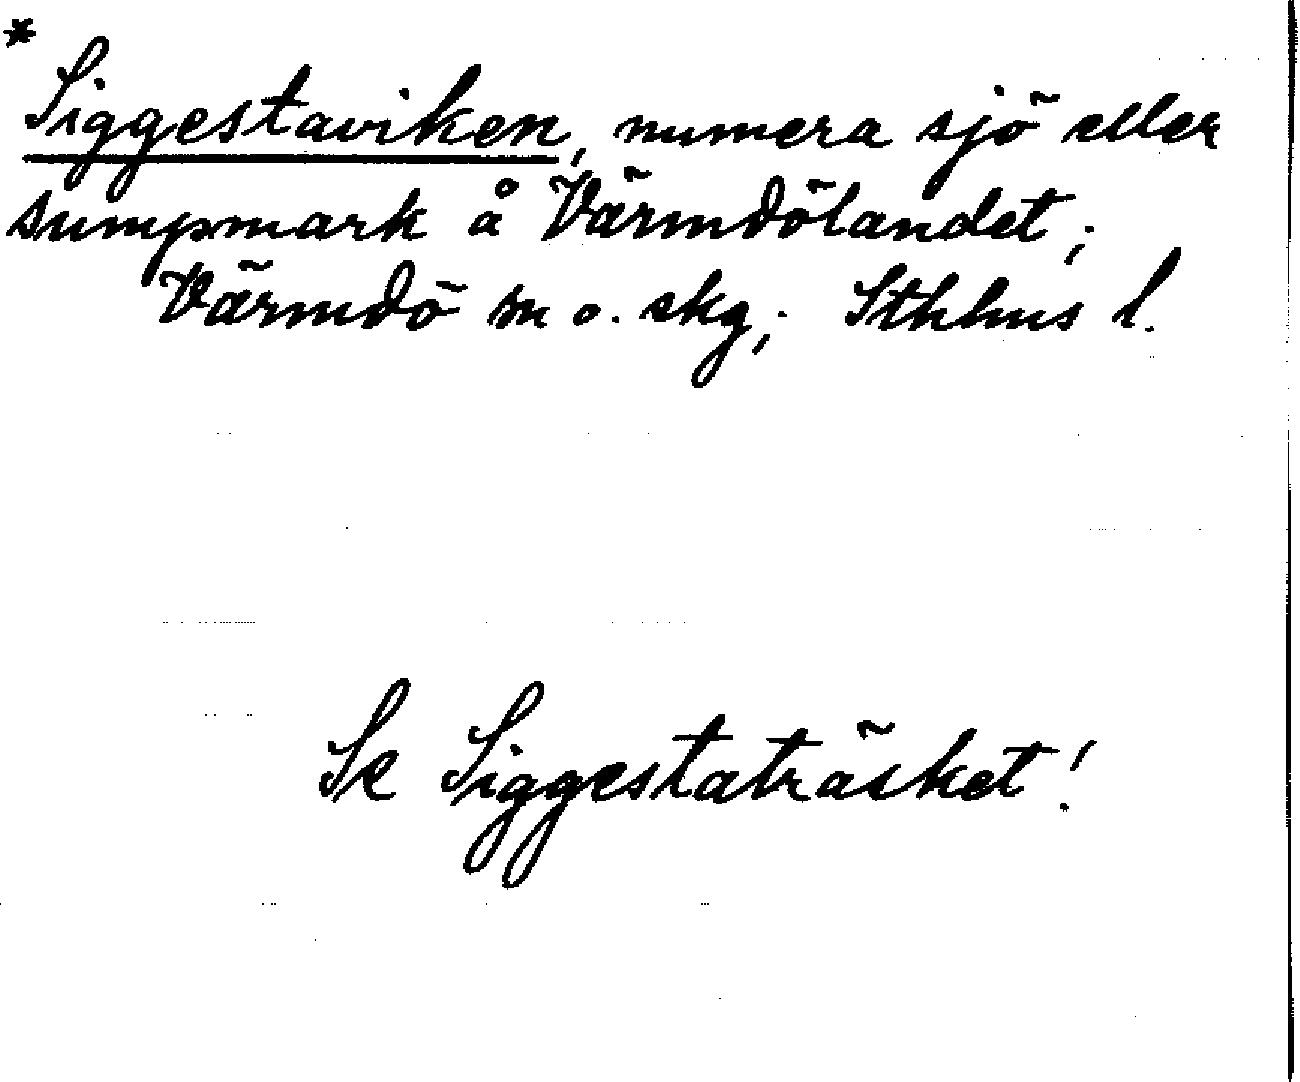 *
Siggestaviken, numera sjö eller
sumpmark å Värmdölandet;
Värmdö sn o. skg; Sthlms l.
Se Siggestaträsket!